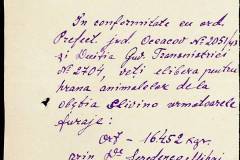 In conformitate cu ord.
Prefect. jud. Oceacov № 205/943
și Direcția Guv. Transnistriei
№ 2704, veți elibera pentru
hrana animalelor de la
obștia Slivino urmatoarele
furaje:
Orz - 16.452 kgr.
prin